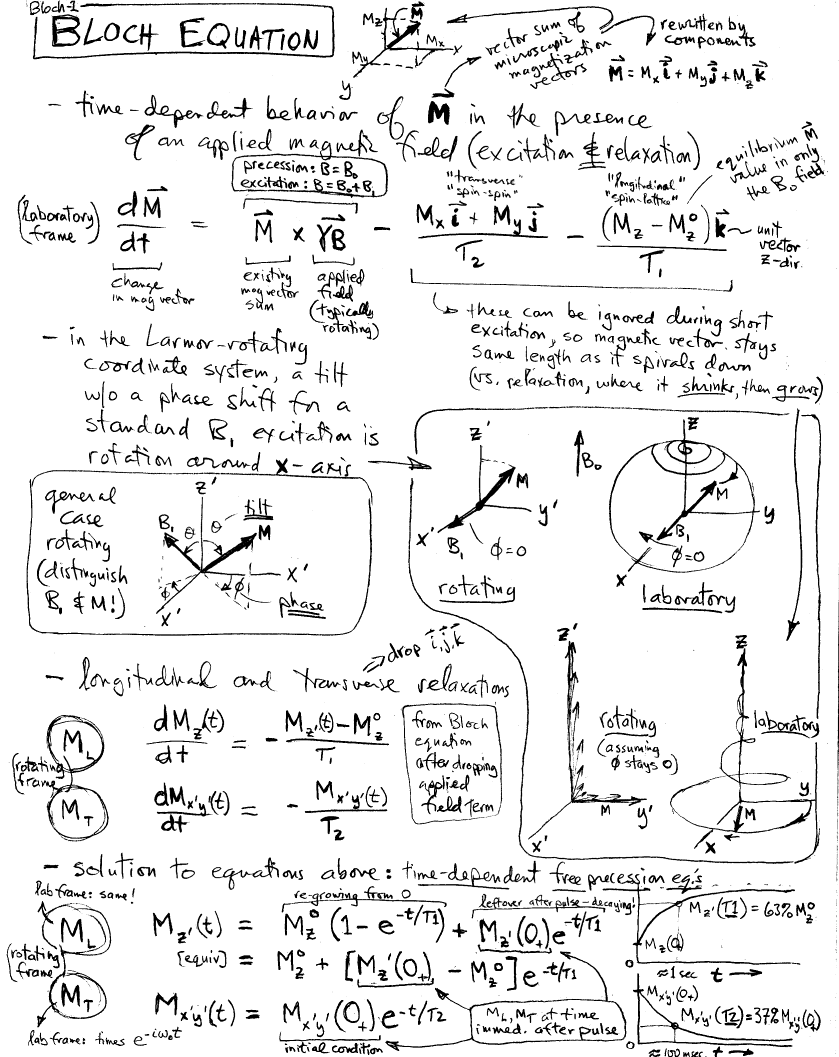 Bloch-1
BLOCH EQUATION
Mz M
My Mx x
y
vector sum of
microscopic
magnetization
vectors
rewritten by
components
M = Mx i + My j + Mz k
- time-dependent behavior of M in the presence
of an applied magnetic field (excitation & relaxation)
precession: B = B₀
excitation: B = B₀ + B₁
"transverse"
"spin-spin"
"longitudinal"
"spin-lattice"
equilibrium M
value in only
the B₀ field
(laboratory frame) dM/dt = M × γB − (Mx i + My j)/T₂ − (Mz − Mz⁰) k/T₁
unit
vector
z-dir.
change
in mag vector
existing
mag vector
sum
applied
field
(typically
rotating)
these can be ignored during short
excitation, so magnetic vector stays
same length as it spirals down
(vs. relaxation, where it shrinks, then grows)
- in the Larmor-rotating
coordinate system, a tilt
w/o a phase shift for a
standard B₁ excitation is
rotation around x-axis
general
case
rotating
(distinguish
B₁ & M!)
z'
B₁ θ θ tilt
M
x'
ϕ ϕ
x'
phase
z'
M
y'
x' B₁ ϕ=0
rotating
B₀
z
M
y
B₁
ϕ=0
x
laboratory
z'
rotating
(assuming
ϕ stays 0)
M y'
x'
z
laboratory
y
M
x
- longitudinal and transverse relaxations
drop i, j, k
(rotating frame)
M_L dMz'(t)/dt = − (Mz'(t) − Mz⁰)/T₁
M_T dMx'y'(t)/dt = − Mx'y'(t)/T₂
from Bloch
equation
after dropping
applied
field term
- solution to equations above: time-dependent free precession eq's
lab frame: same!
re-growing from 0
leftover after pulse - decaying!
M_L Mz'(t) = Mz⁰ (1 − e^(−t/T1)) + Mz'(0₊) e^(−t/T1)
(rotating frame)
[equiv] = Mz⁰ + [Mz'(0₊) − Mz⁰] e^(−t/T1)
M_T Mx'y'(t) = Mx'y'(0₊) e^(−t/T2)
initial condition
M_L, M_T at time
immed. after pulse
lab frame: times e^(−iω₀t)
Mz'(T1) = 63% Mz⁰
Mz(0)
0
≈1 sec t
Mx'y'(0₊)
Mx'y'(T2) = 37% Mx'y'(0₊)
0
≈100 msec. t